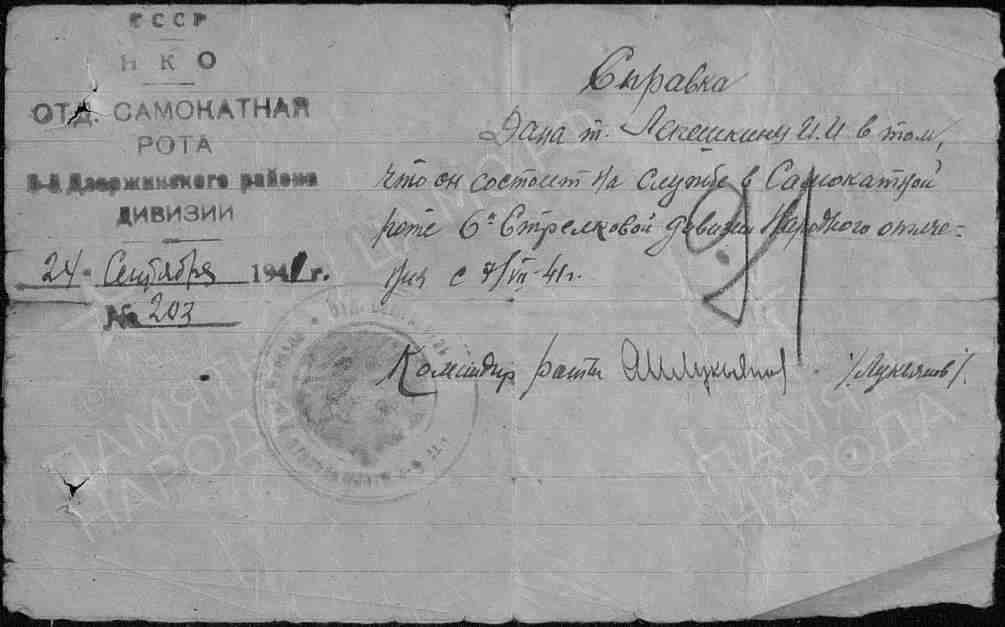 СССР
НКО
ОТД. САМОКАТНАЯ
РОТА
6-й Дзержинского района
ДИВИЗИИ
24 Сентября 1941 г.
№ 203
Справка
Дана т. Лепешкину И.И в том,
что он состоит на службе в Самокатной
роте 6й Стрелковой дивизии Народного ополче-
ния с 7/VII-41г.
Командир роты /Лукьянов/.
ПАМЯТЬ
НАРОДА
ПАМЯТЬ
НАРОДА